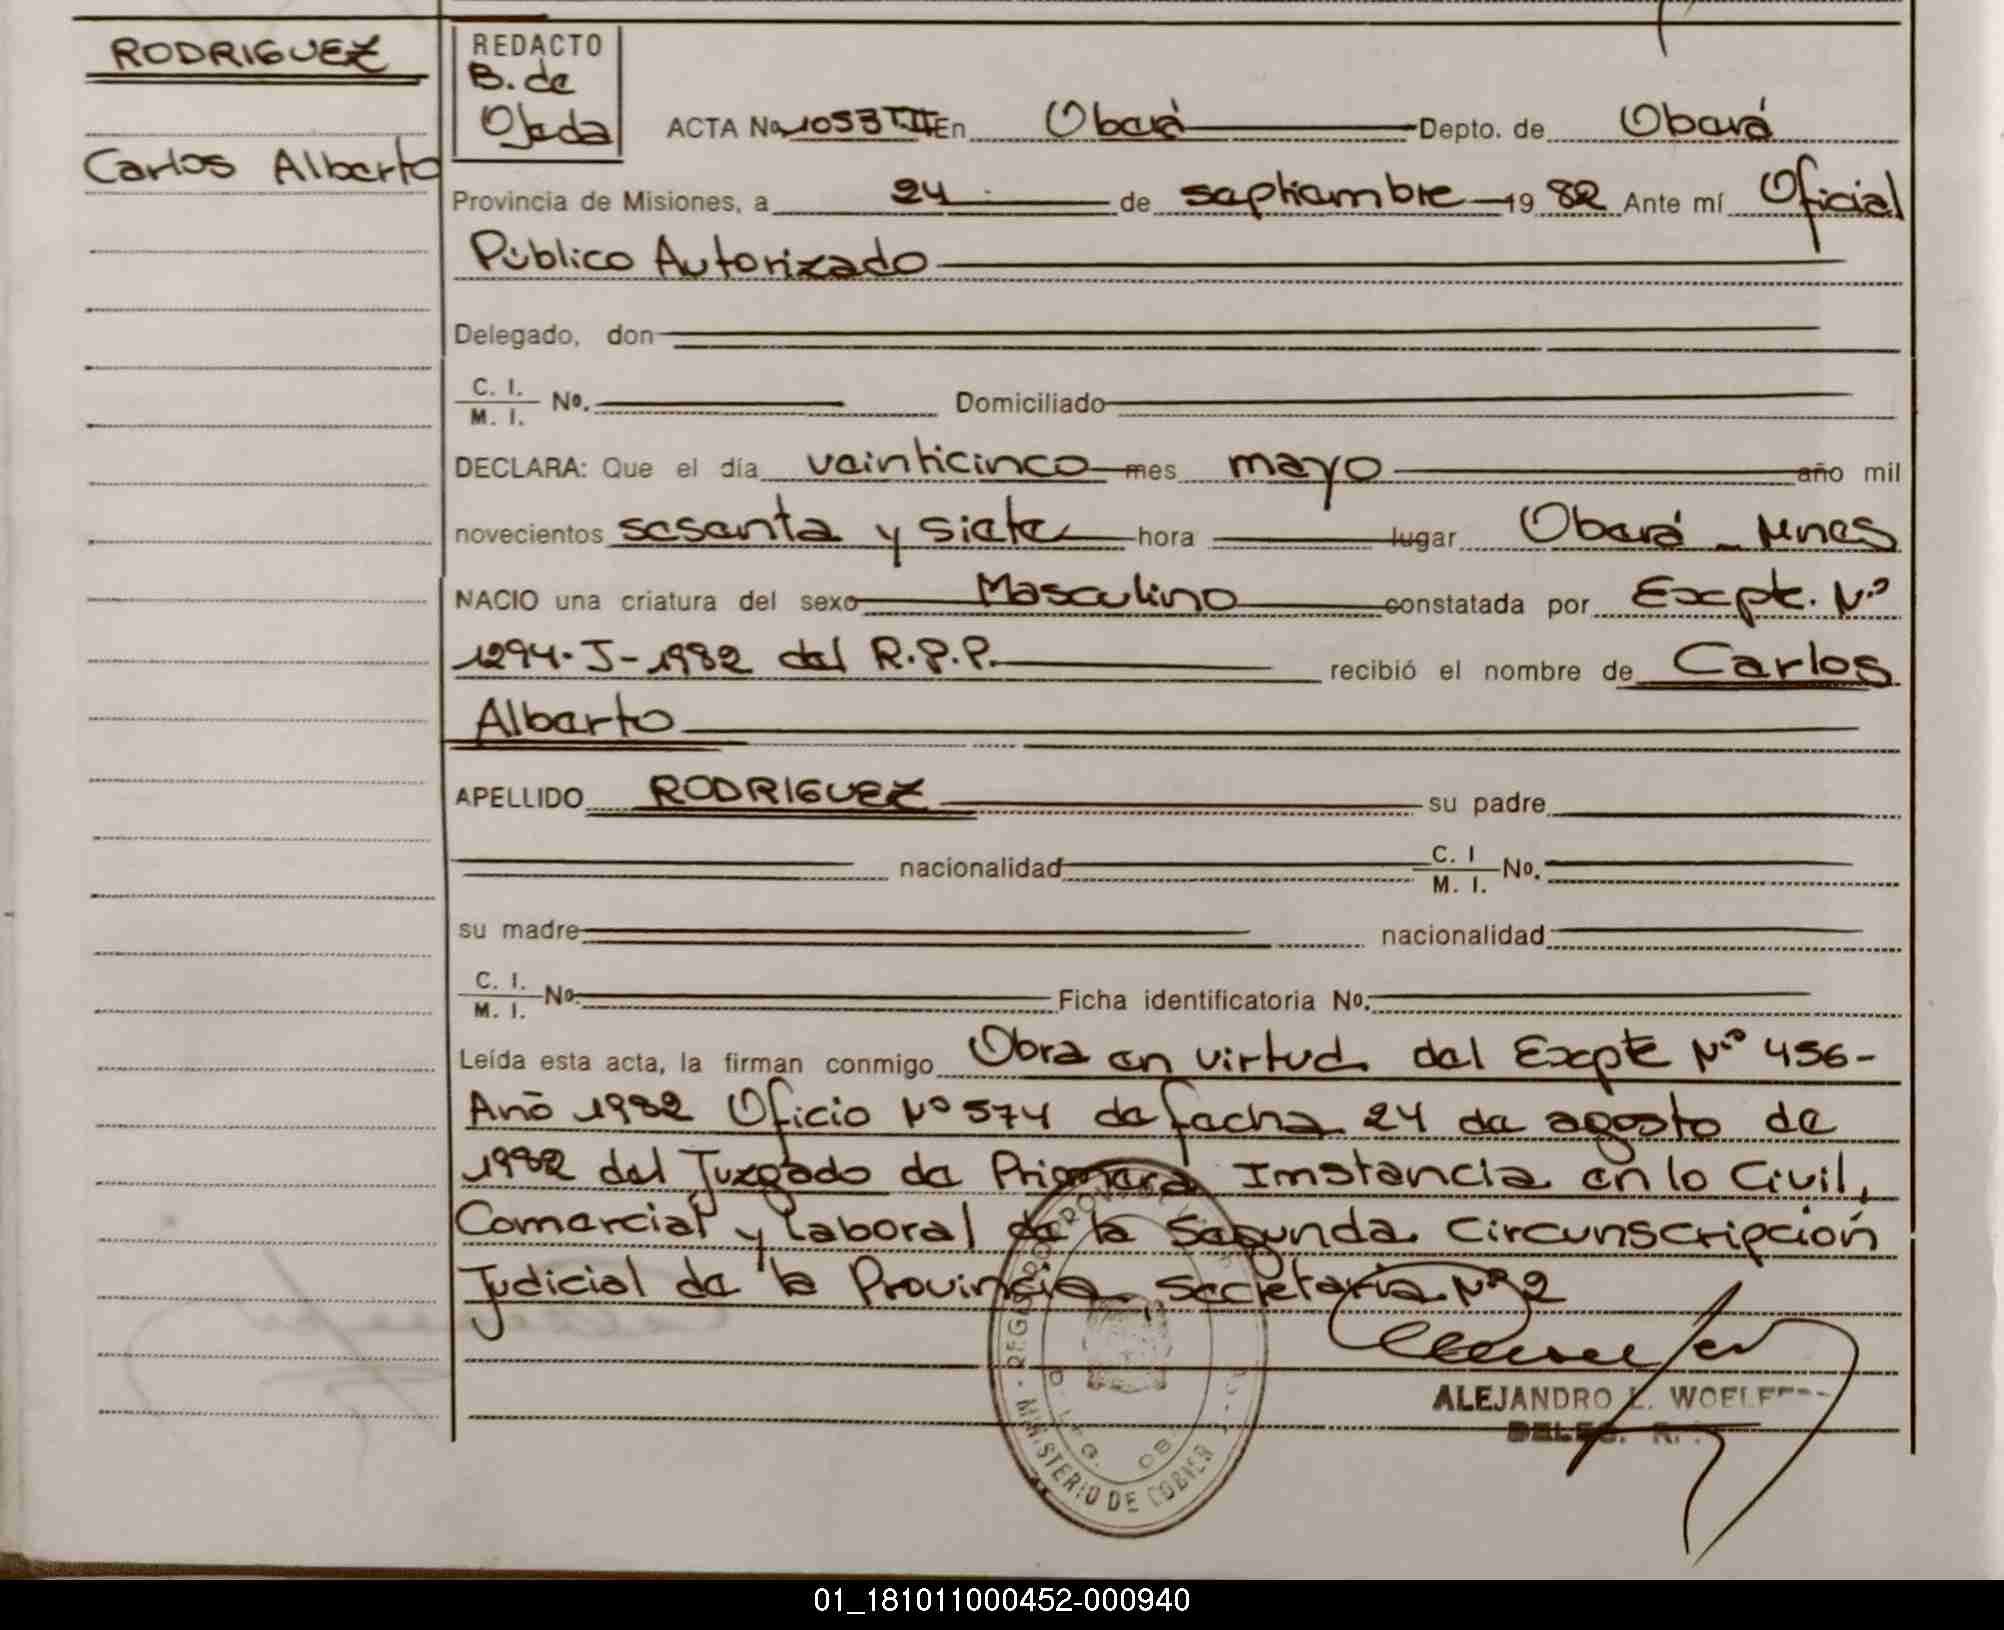 RODRIGUEZ
Carlos Alberto
REDACTO
B. de
Ojeda
ACTA No 1053 T. II En Oberá Depto. de Oberá
Provincia de Misiones, a 24 de septiembre 19 82 Ante mí Oficial
Público Autorizado
Delegado, don
C. I.
M. I. No. Domiciliado
DECLARA: Que el día veinticinco mes mayo año mil
novecientos sesenta y siete hora lugar Oberá - Mnes
NACIO una criatura del sexo Masculino constatada por Expte. Nº
1294-J-1982 del R.P.P. recibió el nombre de Carlos
Alberto
APELLIDO RODRIGUEZ su padre
nacionalidad C. I
M. I. No.
su madre nacionalidad
C. I.
M. I. No. Ficha identificatoria No.
Leída esta acta, la firman conmigo Obra en virtud del Expte Nº 456-
Año 1982 Oficio Nº 574 de fecha 24 de agosto de
1982 del Juzgado de Primera Instancia en lo Civil,
Comercial y Laboral de la Segunda Circunscripción
Judicial de la Provincia, Secretaria Nº 2
ALEJANDRO L. WOELF
DELEG. R.
MINISTERIO DE GOBIER
01_181011000452-000940